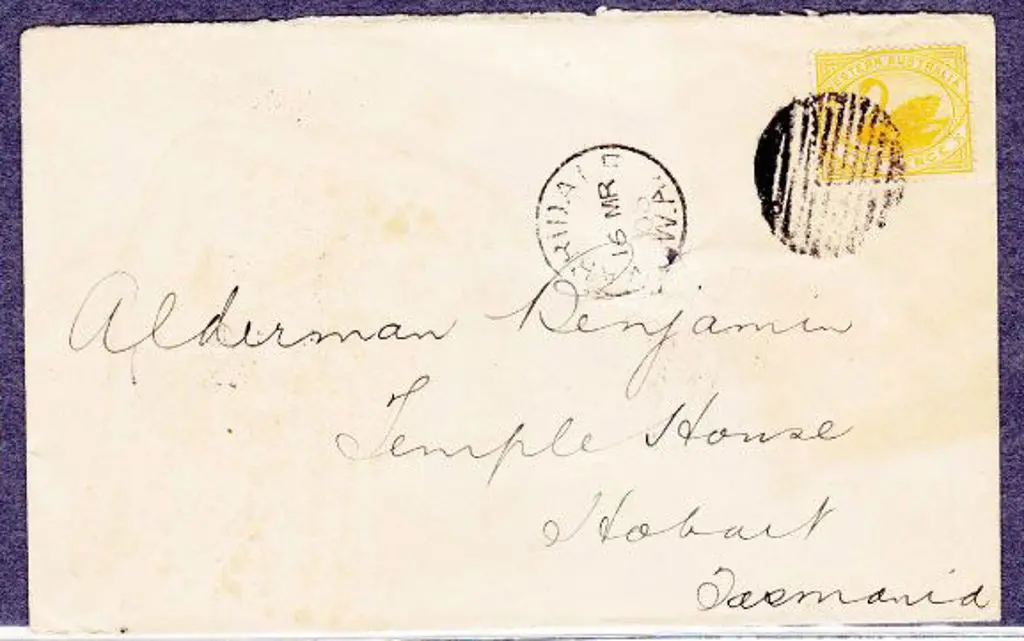 WESTERN AUSTRALIA
16 MR
W.A.
Alderman Benjamin
Temple House
Hobart
Tasmania